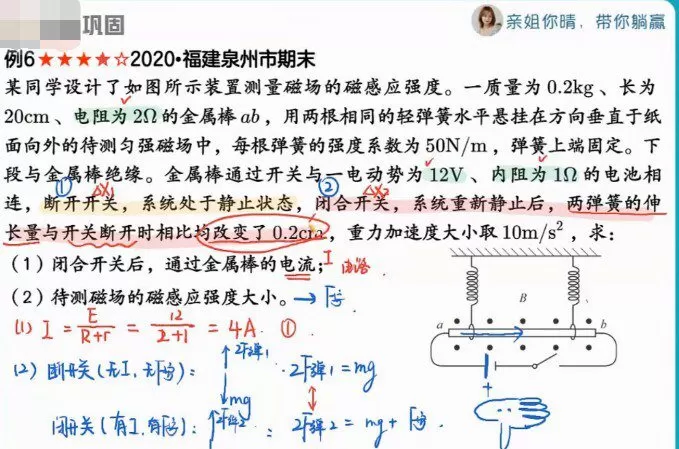 巩固
亲姐你晴，带你躺赢
例6★★★★☆2020·福建泉州市期末
某同学设计了如图所示装置测量磁场的磁感应强度。一质量为 0.2kg、长为
20cm、电阻为 2Ω 的金属棒 ab，用两根相同的轻弹簧水平悬挂在方向垂直于纸
面向外的待测匀强磁场中，每根弹簧的强度系数为 50N/m，弹簧上端固定。下
段与金属棒绝缘。金属棒通过开关与一电动势为 12V、内阻为 1Ω 的电池相
① △x₁ ② △x₂
连，断开开关，系统处于静止状态，闭合开关，系统重新静止后，两弹簧的伸
长量与开关断开时相比均改变了 0.2cm，重力加速度大小取 10m/s²，求：
（1）闭合开关后，通过金属棒的电流；I
（2）待测磁场的磁感应强度大小。→ F安
B
a b
+
(1) I = E/(R+r) = 12/(2+1) = 4A. ①
(2) 断开关(无I,无F安)： 2F弹1 mg 2F弹1 = mg
闭开关(有I,有F安)： 2F弹2 2F弹2 = mg + F安.